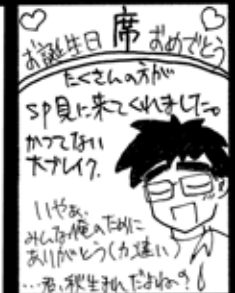 お誕生日席おめでとう
たくさんの方が
SP見に来てくれました。
かつてない
大ブレイク。
いやぁ、
みんな俺のために
ありがとう(カ違い)
…君、秋生まれだよね?